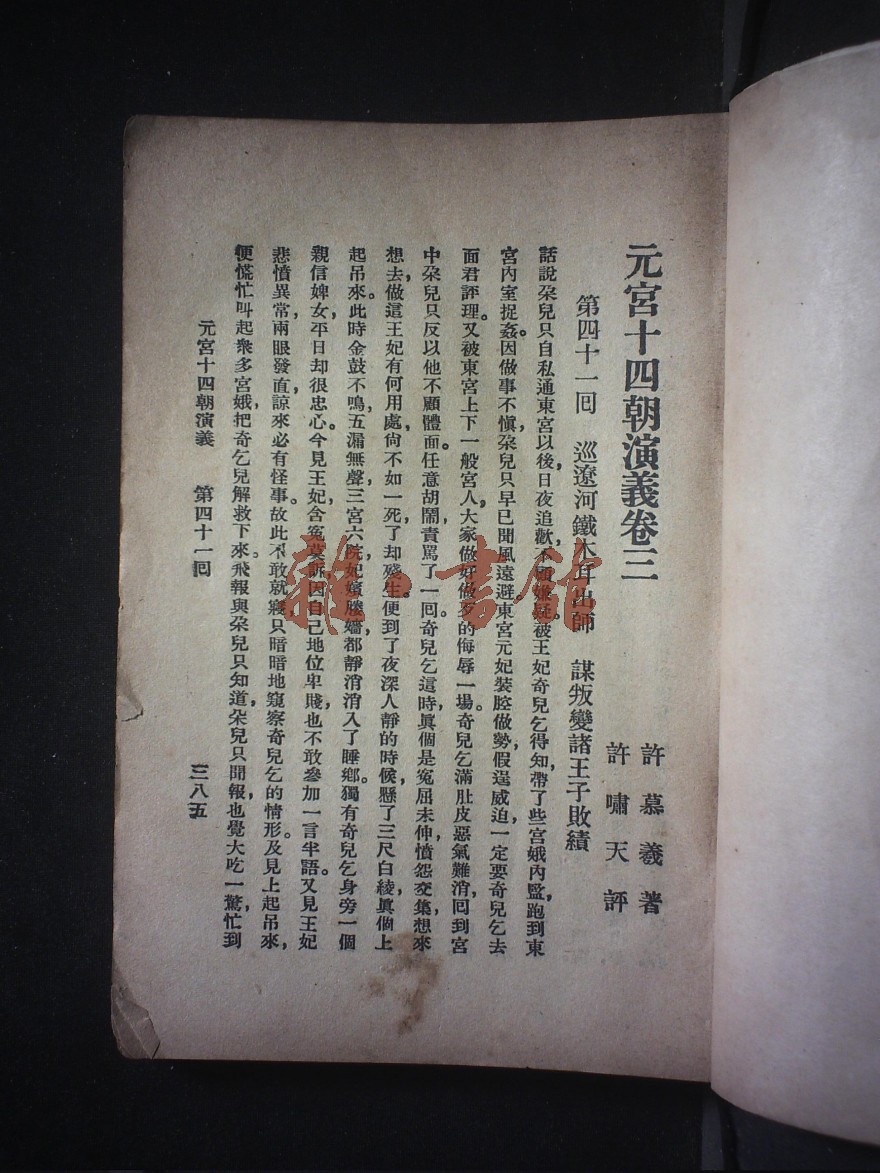 元宮十四朝演義卷三
許慕羲著
許嘯天評
第四十一回 巡遼河鐵木耳出師 謀叛變諸王子敗績
話說朶兒只自私通東宮以後，日夜追歡，不顧嫌疑。被王妃奇兒乞得知，帶了些宮娥內監，跑到東
宮內室捉姦。因做事不愼，朶兒只早已聞風遠避，東宮元妃裝腔做勢，假逞威迫，一定要奇兒乞去
面君評理。又被東宮上下一般宮人，大家做好做歹的侮辱一場。奇兒乞滿肚皮惡氣難消，回到宮
中，朶兒只反以他不顧體面，任意胡鬧，責罵了一回。奇兒乞這時，眞個是冤屈未伸，憤怨交集，想來
想去，做這王妃有何用處，尙不如一死，了却殘生。便到了夜深人靜的時候，懸了三尺白綾，眞個上
起吊來。此時金鼓不鳴，五漏無聲，三宮六院，妃嬪媵嬙，都靜消消入了睡鄉。獨有奇兒乞身旁一個
親信婢女，平日却很忠心。今見王妃含冤莫訴，因自己地位卑賤，也不敢參加一言半語。又見王妃
悲憤異常，兩眼發直，諒來必有怪事。故此不敢就寢，只暗暗地窺察奇兒乞的情形。及見上起吊來，
便慌忙叫起衆多宮娥，把奇乞兒解救下來。飛報與朶兒只知道，朶兒只聞報，也覺大吃一驚，忙到
元宮十四朝演義 第四十一回
三八五
雜·書館